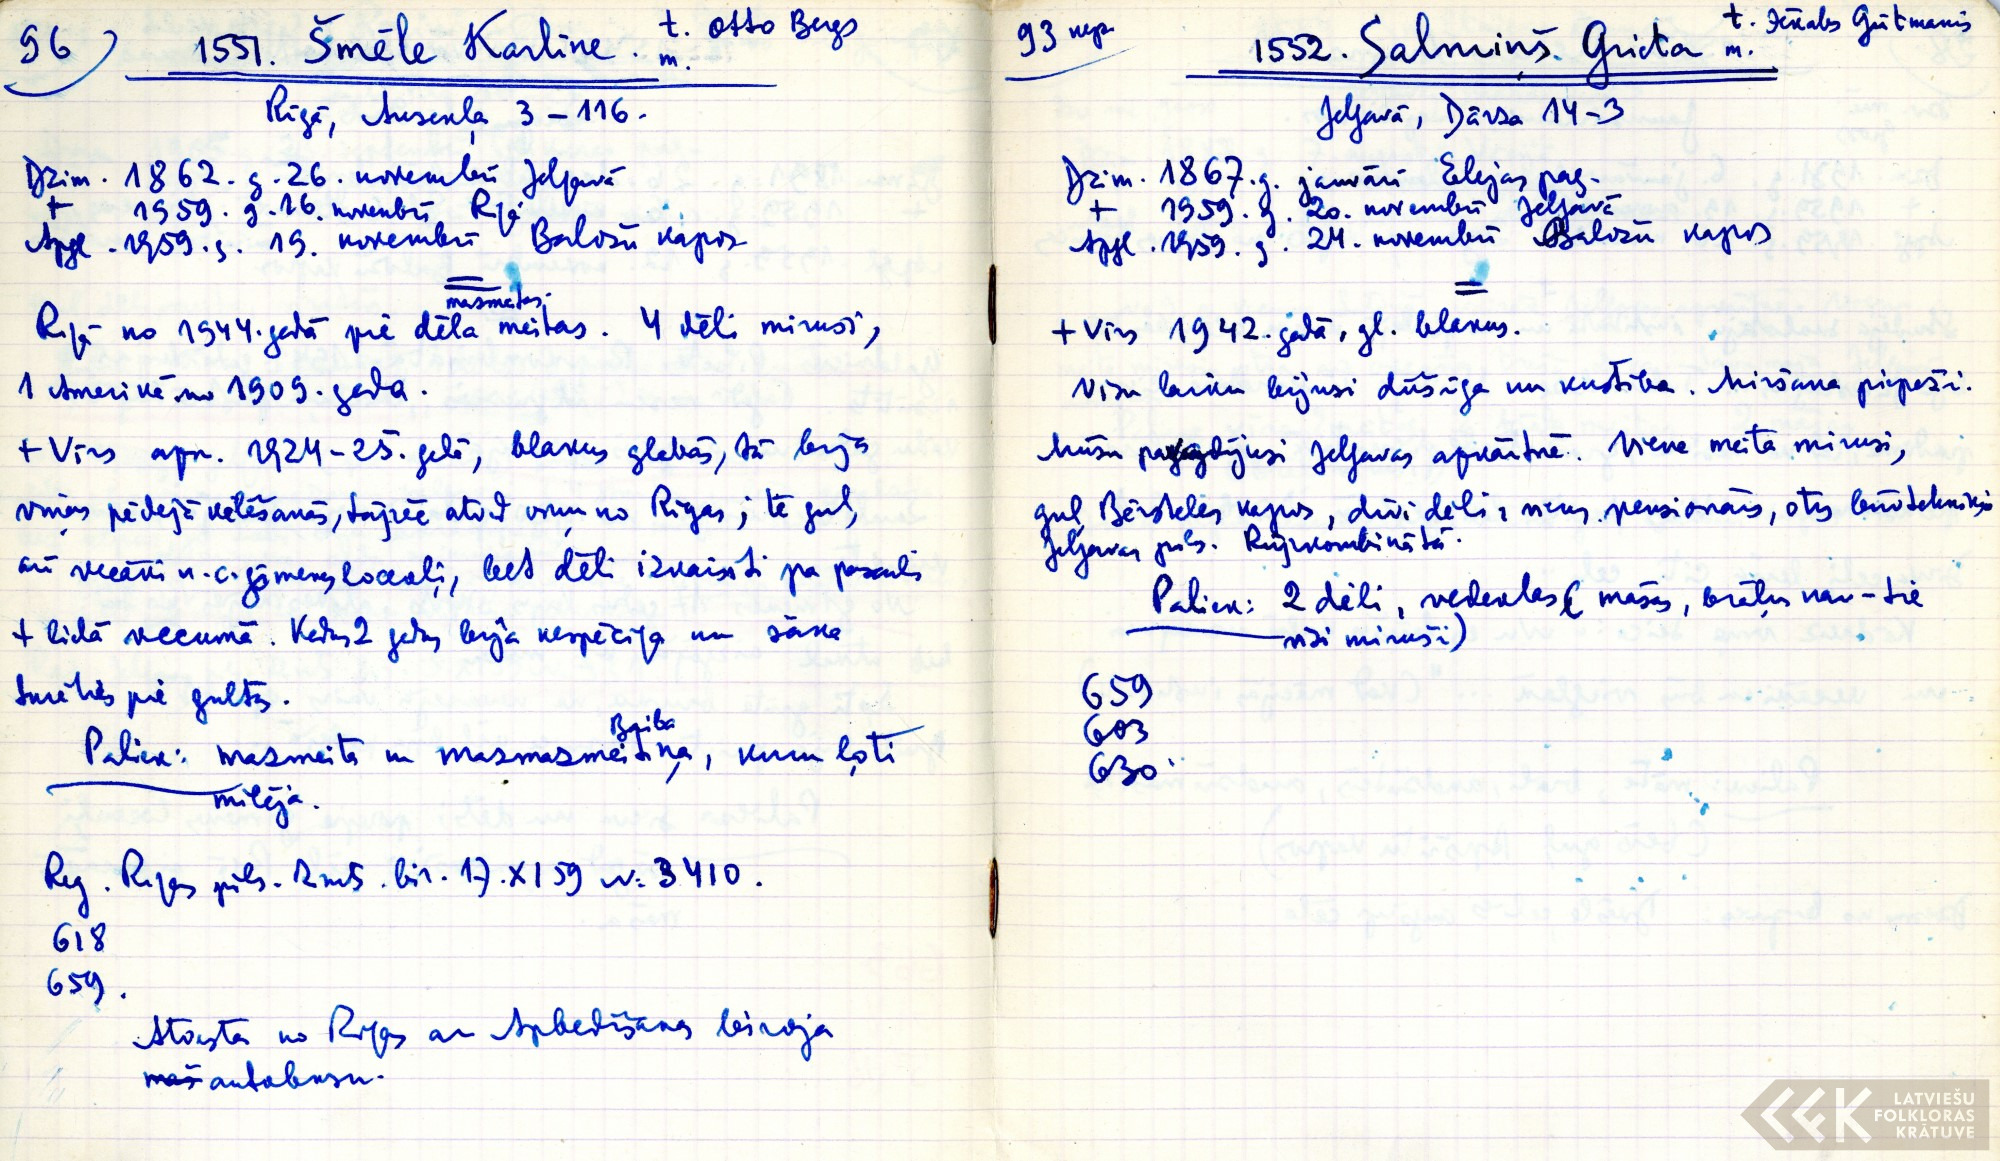 96
1551. Šmēle Karline. t. Otto Bergs
m.
Rīgā, Ausekļa 3 – 116.
Dzim. 1862. g. 26. novembrī Jelgavā
+ 1959. g. 16. novembrī Rīgā
Apgl. 1959. g. 19. novembrī Baložu kapos
masmeitas.
Rīgā no 1944. gadā pie dēla meitas. 4 dēli miruši,
1 Amerikā no 1909. gada.
+ Vīrs apr. 1924–25. gadā, blakus glabās, tā bija
viņas pēdējā vēlēšanās, tājpēc atved viņu no Rīgas; te guļ
arī vecāki u.c. ģimenes locekļi, bet dēli izkaisīti pa pasauli
+ lielā vecumā. Kādus 2 gadus bija nespēcīga un sāka
turēties pie gultas.
Baiba
Paliek: mazmeita un mazmazmeitiņa, kuru ļoti
mīlēja.
Reg. Rīgas pils. Dzimts. bir. 17. XI 59 N: 3410.
618
659.
Atvesta no Rīgas ar Apbedīšanas biroja
maš autobusu.
93 nepr.
1552. Salmiņš Grieta t. Jēkabs Gūtmanis
m.
Jelgavā, Dārza 14–3
Dzim. 1867. g. janvārī Elejas pag.
+ 1959. g. 20. novembrī Jelgavā
Apgl. 1959. g. 24. novembrī Baložu kapos
+ Vīrs 1942. gadā, gl. blakus.
Visu laiku bijusi dūšīga un kustība. Miršana piepeši.
Mūžu pavadījusi Jelgavas apkārtnē. Viena meita mirusi,
guļ Bērsteles kapos, divi dēli, viens pensionārs, otrs būvtehniķis
Jelgavas pils. Rūpkombinātā.
Paliek: 2 dēli, vedeklas (māsas, brāļus nav – tie
visi miruši)
659
603
630.
LATVIEŠU
FOLKLORAS
KRĀTUVE